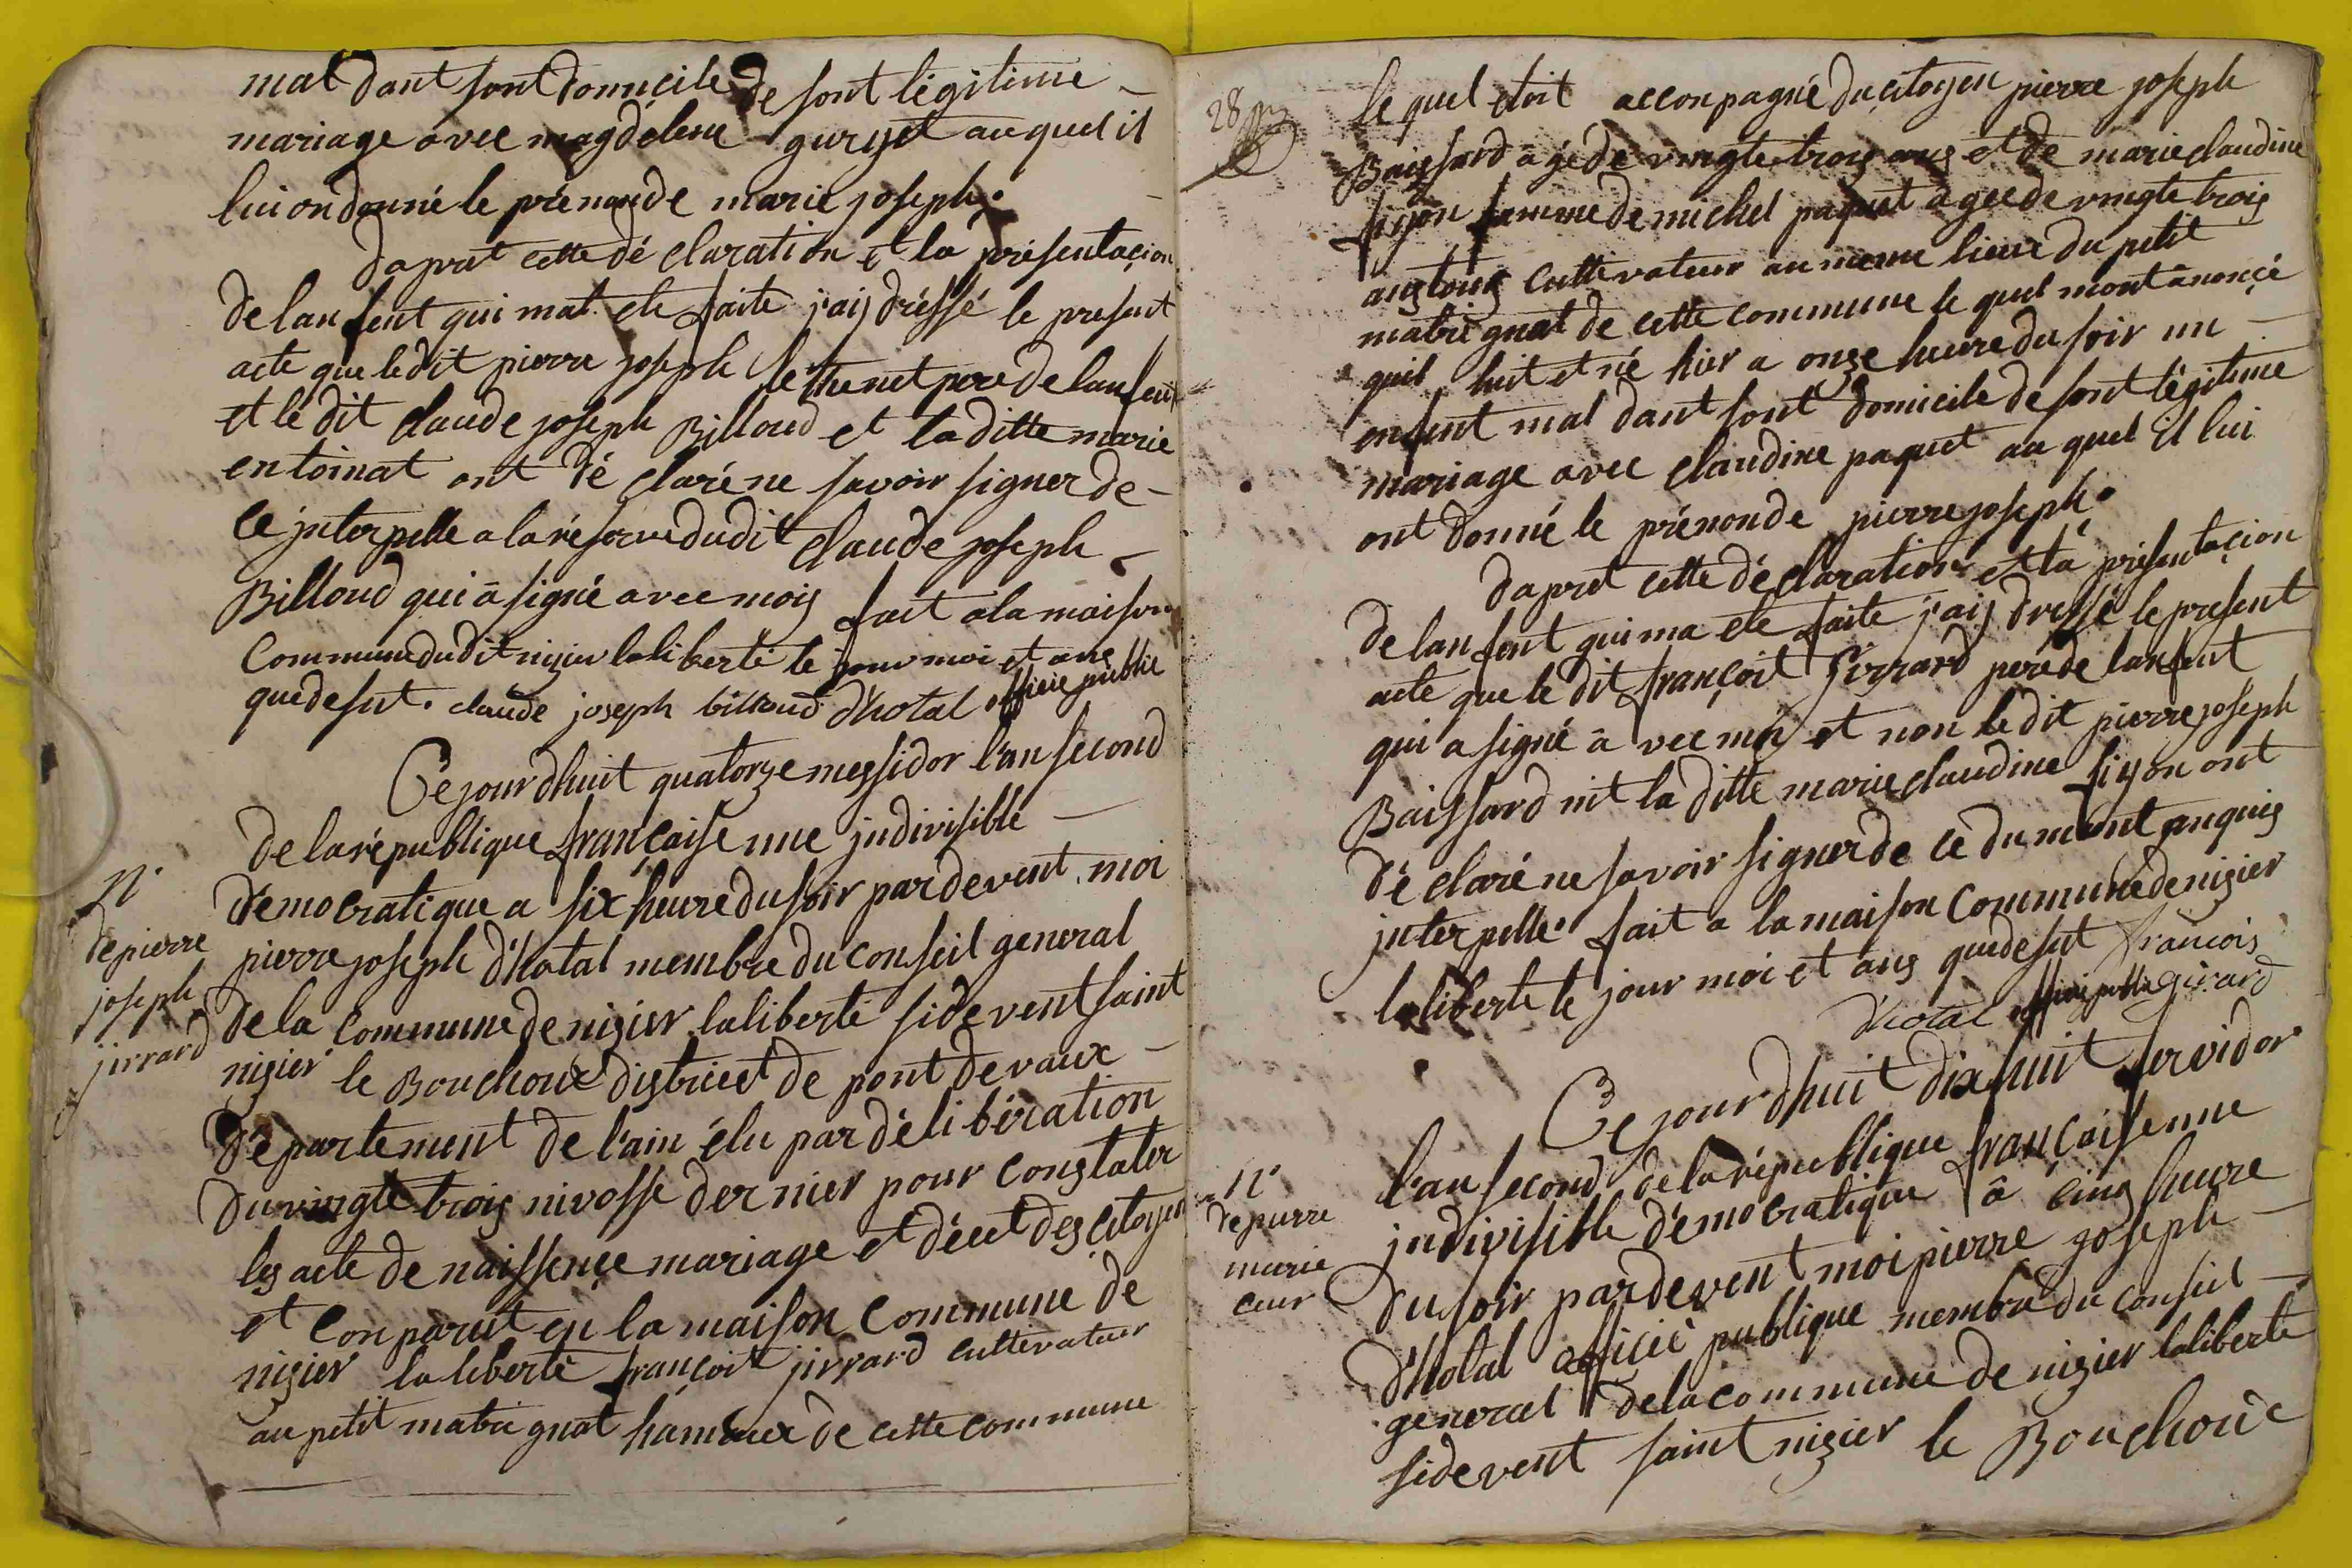 mal dant sont domicile de sont légitime
mariage avec magdelene guryet au quel il
lui on donné le prénonde marie joseph.
daprat cette dé claration et la présentaçion
de lanfent qui mat. ete faite j'aij dréssé le present
acte que ledit pierre joseph pere de lanfent
et le dit claude joseph Billoud et la ditte marie
entoinat ont dé claré ne savoir signer de
ce jnterpelle a la réserve dudit claude joseph
Billoud qui à signé avec mois fait a la maison
Commune dudit nizier laliberté le jour moi et ans
que desut. claude joseph billoud d'hotal officié public
Ce jourdhuit quatorze messidor l'an second
de la république française une jndivisible
démocratique a six heure du soir pardevent moi
N.
de pierre
joseph
jirrard
pierre joseph d'hotal membre du conseil general
de la commune de nizier laliberté sidevent saint
nizier le Bouchoux district de pont devaux
Département de l'ain élu par délibération
du vingte trois nivosse dernier pour constater
les acte de naissençe mariage et décet des citoyen
et conparut en la maison commune de
nizier laliberté françoit jirrard cultivateur
au petit matrignat hameux de cette commune
28
le quel etoit acconpagné du citoyen pierre joseph
Baissard agé de vingte trois ans et de marie claudine
fijon femme de michel paquet agée de vingte trois
ans tous cultivateur au meme lieux du petit
matrignat de cette commune le quel mont ânonçé
quil huit et né hier a onze heure du soir un
enfent mal dant sont domicile de sont légitime
mariage avec claudine paquet au quel il lui
ont donné le prénonde pierre joseph.
daprot cette déclaration et la présentaçion
de lanfent qui ma ete faite j'aij dressé le present
acte que le dit françoit jirrard pere de lanfent
qui a signé à vec moi et non le dit pierre joseph
Baissard nit la ditte marie claudine fijon ont
dé claré ne savoir signer de ce dument anquis
jnterpelle. fait a la maison Commune de nizier
laliberte le jour moi et ans que desut francois
d'hotal officié public girard
Ce jourdhuit dix huit fervidor
N.
de pierre
marie
ceur
l'an second de la république françaisenne
jndivisible démocratique à cinq heure
du soir pardevent moi pierre joseph
d'hotal officié publique membre du conseil
general de la commune de nizier laliberté
sidevent saint nizier le Bouchoux